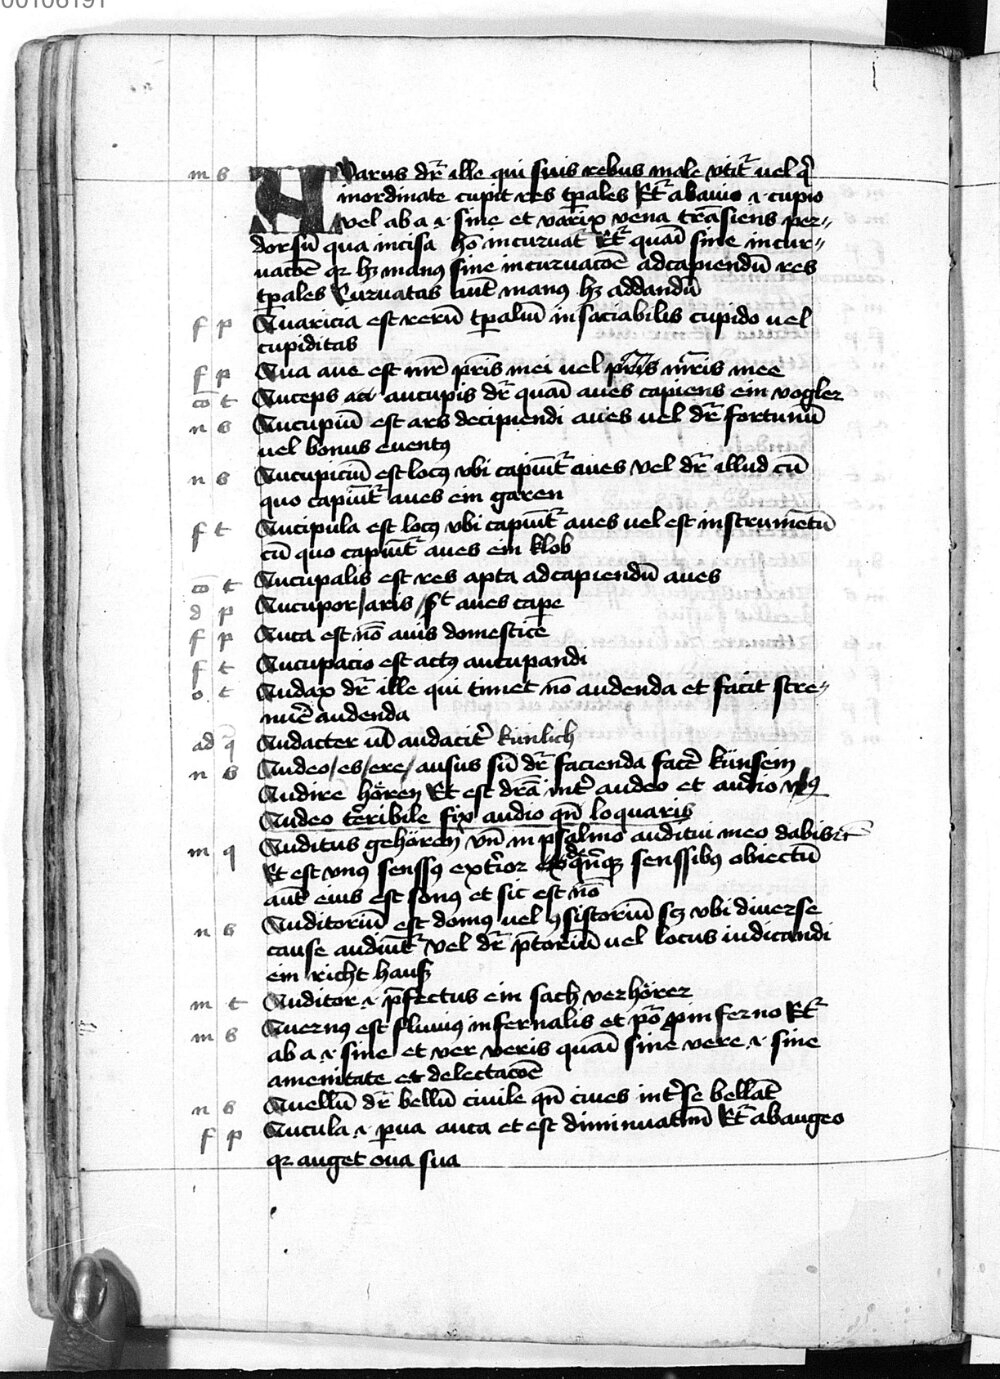 m s Avarus dr̄ ille qui suis rebus male vtit᷑ uel q̄
inordinate cupit res tp̄ales Et᷑ ab aueo .i. cupio
vel ab a .i. sine et varix vena transiens per
dorsū qua incisa hō incuruat᷑ Et᷑ quasi sine incur
uacōe qr hꝫ manꝰ sine incuruacōe ad capiendū res
tp̄ales Curuatas aut̄ manꝰ hꝫ ad dandū
f p Auaricia est rerū tp̄aliū insaciabilis cupido uel
cupiditas
f p Aua aue est mr̄ pr̄is mei uel mr̄is mee
cō t Auceps aucupis dr̄ quasi aues capiens ein vogler
n s Aucupiū est ars decipiendi aues uel dr̄ fortuniū
uel bonus euentꝰ
n s Aucupiciū est locꝰ vbi capiūt᷑ aues vel dr̄ illud cū
quo capiūt᷑ aues ein garen
f t Aucipula est locꝰ vbi capiūt᷑ aues uel est instrumētū
cū quo capiūt᷑ aues ein klob
cō t Aucupalis est res apta ad capiendū aues
d p Aucupor/aris /st aues capere
f p Auca est nō auis domestice
f t Aucupacio est actꝰ aucupandi
o t Audax dr̄ ille qui timet nō audenda et facit stre
nue audenda
ad q̄ Audacter uel audacit᷑ künlich
n s Audeo/es/ere/ausus sū dr̄ facienda facere künsein
Audire hören Et est dr̄a int᷑ audeo et audio vsꝰ
Audeo terribile fit audio qn̄ loquaris
m q Auditus gehören vn̄ in psalmo auditui meo dabis
Et est vnus senssꝰ exterior de qnq̄ senssibus obiectū
aut̄ eius est sonus et sic est nō
n s Auditoriū est domus uel ꝯsistoriū scꝫ vbi diuerse
cause audiūt᷑ vel dr̄ p̄toriū uel locus iudicandi
ein richt hauß
m t Auditor .i. p̄fectus ein sach verhörer
m s Auernꝰ est fluuiꝰ infernalis et pō p inferno Et᷑
ab a .i. sine et ver veris quasi sine vere .i. sine
amenitate et delectacōe
n s Auellū dr̄ bellū ciuile qn̄ ciues int᷑ se bellāt
f p Aucula .i. parua auca et est diminuatiuū Et᷑ ab augeo
qr auget oua sua